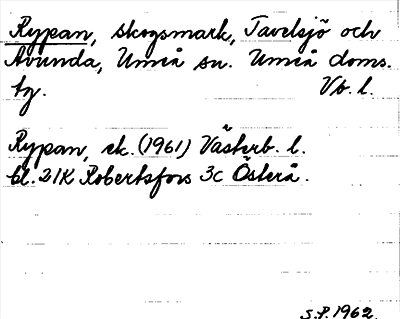 Rypan, skogsmark, Tavelsjö och
Avunda, Umeå sn. Umeå doms.
tg. Vb. l.
Rypan, sk. (1961) Västerb. l.
bl. 21K Robertsfors 3c Österå.
S.P. 1962.